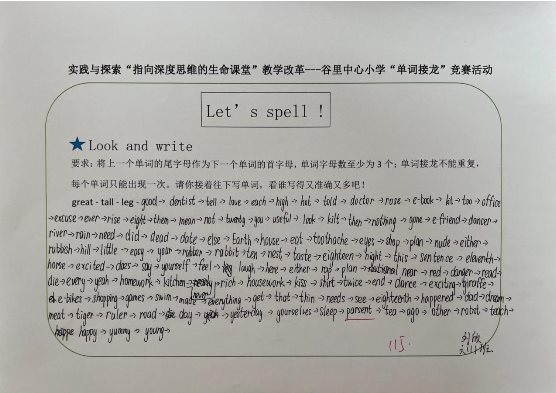 实践与探索“指向深度思维的生命课堂”教学改革---谷里中心小学“单词接龙”竞赛活动
Let's spell !
★Look and write
要求：将上一个单词的尾字母作为下一个单词的首字母，单词字母数至少为3个；单词接龙不能重复，
每个单词只能出现一次。请你接着往下写单词，看谁写得又准确又多吧！
great - tall - leg - good → dentist → tell → love → each → high → hot → told → doctor → rose → e-book → kit → too → office
→ excuse → ever → rise → eight → then → mean → not → twenty → you → useful → look → kilt → then → nothing → gone → e-friend → dancer →
river → rain → need → did → dead → date → else → Earth → house → eat → toothache → eyes → shop → plan → nude → either →
rubbish → hill → little → easy → your → rabbit → ten → nest → taste → eighteen → night → this → sentence → eleventh →
horse → excited → does → say → yourself → feel → laugh → here → either → rop → plan → near → red → danger → read →
die → every → yeah → homework → kitchen → rich → housework → kiss → shirt → twice → end → dance → exciting → giraffe →
bikes → shopping → games → swim → made → everything → get → that → thin → needs → see → eighteenth → happened → dad → dream →
meat → tiger → ruler → road → day → yesterday → yourselves → sleep → parsent → tea → ago → other → robot → teach →
happy → yummy → young →
115